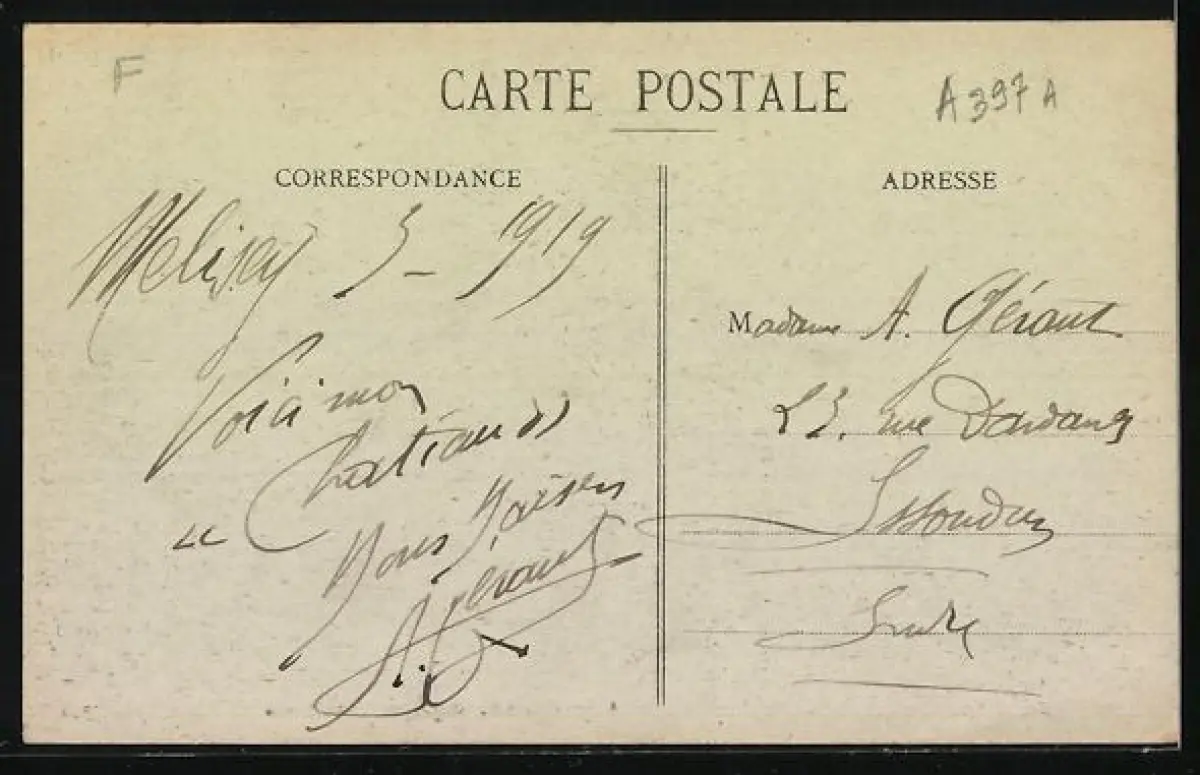 F
CARTE POSTALE
A 397 A
CORRESPONDANCE
Melisey 3 - 1919
Voici mon
" Chateau "
Bons Baisers
A. Gérault
ADRESSE
Madame A. Gérault
23. rue
Issoudun
Indre